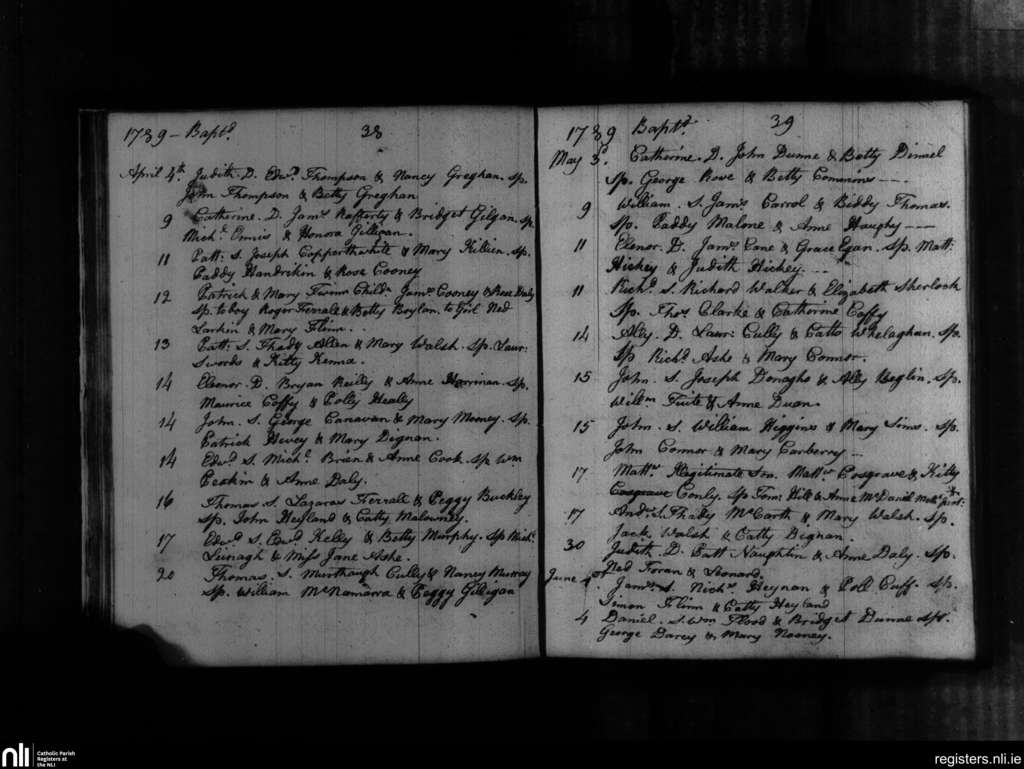 1789 - Baptd. 38
April 4th. Judith. D. Edwd. Thompson & Nancy Greghan. Sp.
John Thompson & Betty Greghan
9 Catherine. D. Jams. Rafferty & Bridget Gilgan. Sp.
Michl. Ennis & Honora Gilligan.
11 Patt: S. Joseph Copperthwite & Mary Killein. Sp.
Paddy Handrikin & Rose Cooney
12 Patrick & Mary Twins Childn. Jams. Cooney & Rose Daly
Sp. to boy Roger Ferrall & Betty Boylan. to Girl Ned
Larkin & Mary Flinn.
13 Patt: S. Thady Allen & Mary Walsh. Sp. Laur:
Swords & Kitty Kenna.
14 Eleonor. D. Bryan Reilly & Anne Harrinan. Sp.
Maurice Coffy & Polly Healey
14 John. S. George Canavan & Mary Mooney. Sp.
Patrick Hevey & Mary Dignan.
14 Edwd. S. Michl. Brien & Anne Cook. Sp. Wm
Eeskin & Anne Daly.
16 Thomas S. Lazarus Ferrall & Peggy Buckley
Sp. John Heyland & Catty Malowney.
17 Edwd. S. Edwd. Kelly & Betty Murphy. Sp. Michl:
Leinagh & Miss Jane Ashe.
20 Thomas. S. Murthaugh Cully & Nancy Murray
Sp. William McNamarra & Peggy Gilligan
1789 Baptd. 39
May 3d. Catherine. D. John Dunne & Betty Dinnel
Sp. George Rose & Betty Commins
9 William. S. Jams. Carrol & Biddy Thomas.
Sp. Paddy Malone & Anne Haughy
11 Elenor. D. Jams. Cane & Grace Egan. Sp. Matt:
Hickey & Judith Hickey.
11 Richd. S. Richard Walker & Elizabeth Sherlock
Sp. Thos. Clarke & Catherine Caffy
14 Ally. D. Laur: Cully & Catte Whelaghan. Sp.
Sp Richd. Ashe & Mary Connor.
15 John. S. Joseph Donagho & Ally Beglin. Sp.
Willm. Tuite & Anne Duan.
15 John. S. William Higgins & Mary Sims. Sp.
John Connor & Mary Carberry
17 Mattw. Illegitimate Son. Mattw. Cosgrave & Kitty
Cosgrave Conly. Sp. Tom: Hill & Anne McDaniel
17 Andw. S. Thady McCarth & Mary Walsh. Sp.
Jack Walsh & Catty Dignan.
30 Judith. D. Patt Naughtin & Anne Daly. Sp.
Ned Foran & Leonard.
June 4 Jams. S. Nichs. Heynan & Poll Cuff. Sp.
Simon Flinn & Catty Heyland
4 Daniel. S. Wm Flood & Bridget Dunne Sp.
George Darcy & Mary Nooney.
nli
Catholic Parish
Registers at
the NLI
registers.nli.ie